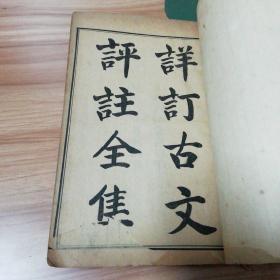 詳訂古文
評註全集